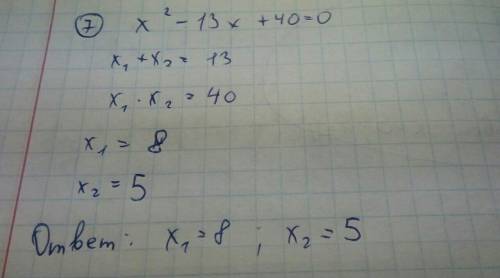 7 x² - 13x + 40 = 0
x₁ + x₂ = 13
x₁ · x₂ = 40
x₁ = 8
x₂ = 5
Ответ: x₁ = 8 ; x₂ = 5